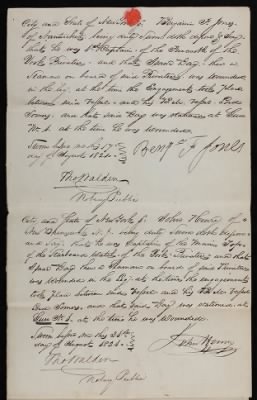 City and State of New York ss. Benjamin F. Jones
of Nantucket being duly sworn doth depose & say
that he was 1st Captain of the Forecastle of the
York Privateer - and that Isaac Bay then a
Seaman on board of said Privateer was wounded
in the leg, at the time the Engagement took place
between said Vessel - and his
and that said Bay was stationed at Gun
No. 6. at the time he was Wounded
Sworn before me this 17th
day of August 1821.
Benj. F Jones
Thos Walden
Notary Public
City and State of New York ss. John Howe of
New Brunswick N. J. being duly sworn doth depose
and say that he was Captain of the Main Top
of the Starboard Watch of the York Privateer and that
Isaac Bay then a Seaman on board of said Privateer
was Wounded in the Leg at the time the engagement
took place between said Vessel and his
and that said Bay was stationed at
Gun No. 6. at the time he was Wounded.
Sworn before me this 28th
day of August 1821.
John Howe
Thos Walden
Notary Public